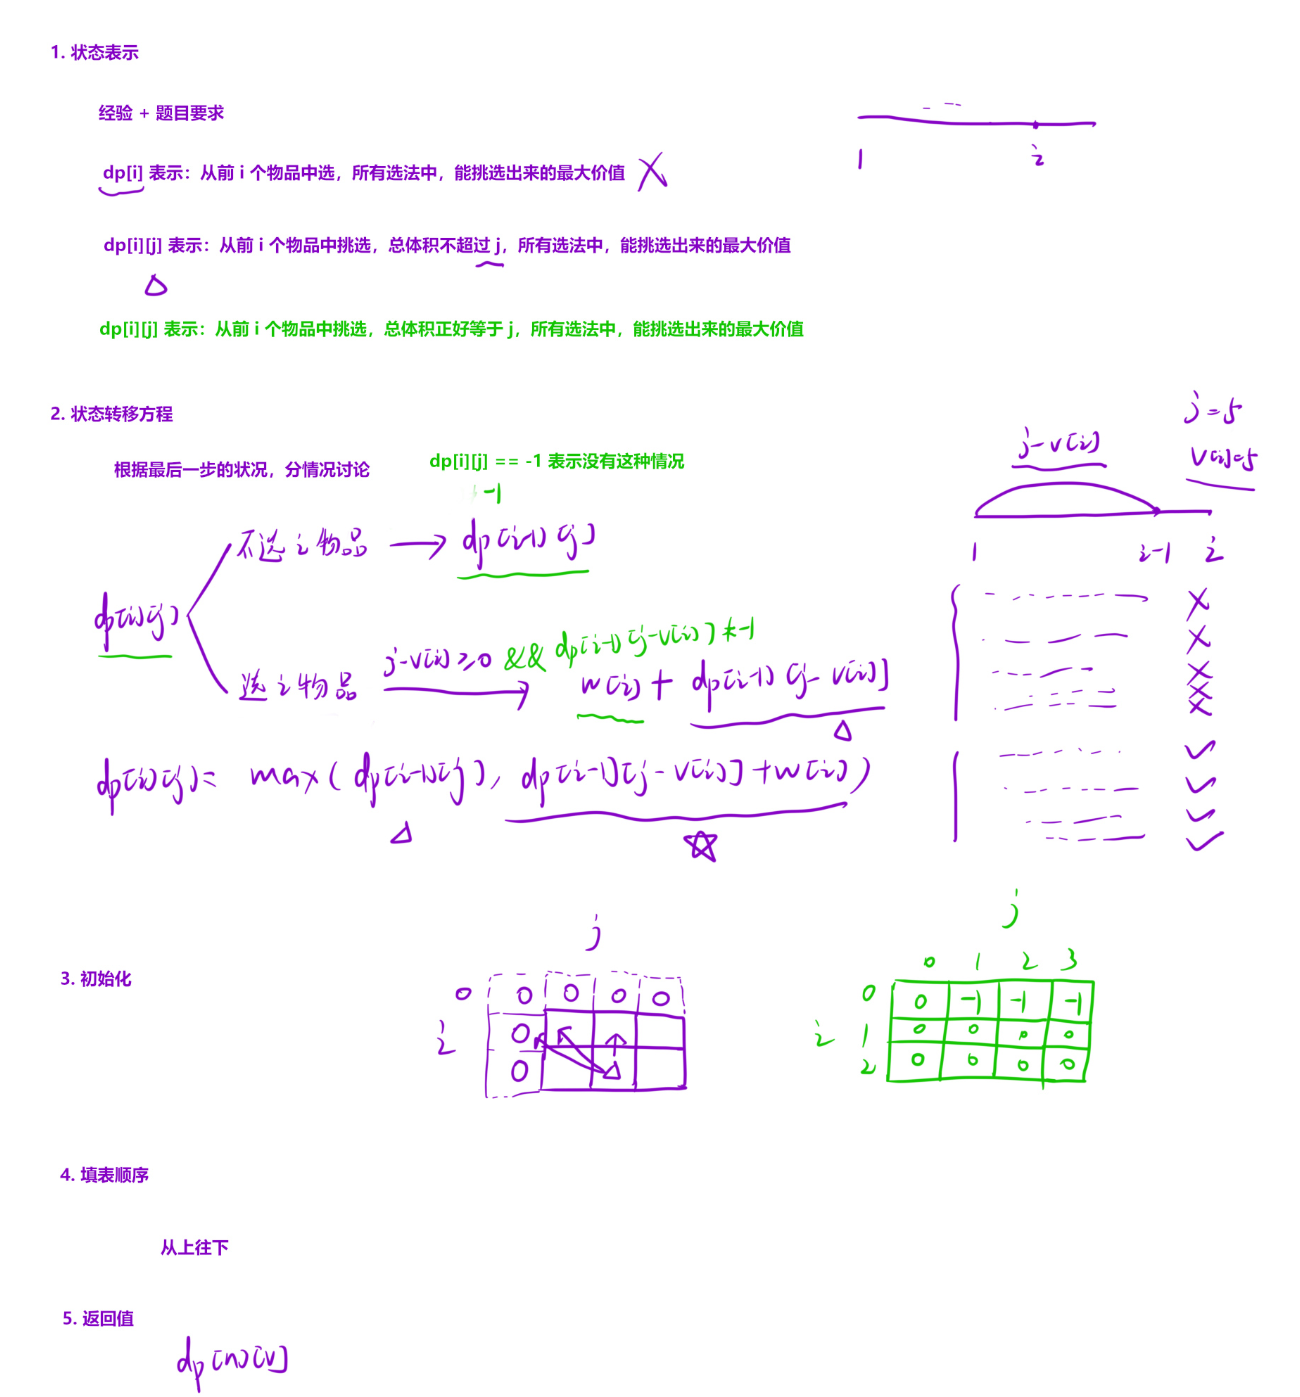 1. 状态表示
经验 + 题目要求
1 i
dp[i] 表示：从前 i 个物品中选，所有选法中，能挑选出来的最大价值
dp[i][j] 表示：从前 i 个物品中挑选，总体积不超过 j，所有选法中，能挑选出来的最大价值
dp[i][j] 表示：从前 i 个物品中挑选，总体积正好等于 j，所有选法中，能挑选出来的最大价值
2. 状态转移方程
j=5
j-v[i]
v[i]=5
根据最后一步的状况，分情况讨论
dp[i][j] == -1 表示没有这种情况
-1
不选 i 物品 → dp[i-1][j]
1 i-1 i
dp[i][j]
j-v[i]≥0 && dp[i-1][j-v[i]]≠-1
选 i 物品 → w[i] + dp[i-1][j-v[i]]
dp[i][j]= max(dp[i-1][j], dp[i-1][j-v[i]]+w[i])
3. 初始化
j
0 0 0 0 0
i 0
0
j
0 1 2 3
0 0 -1 -1 -1
i 1 0 0 0 0
2 0 0 0 0
4. 填表顺序
从上往下
5. 返回值
dp[n][V]